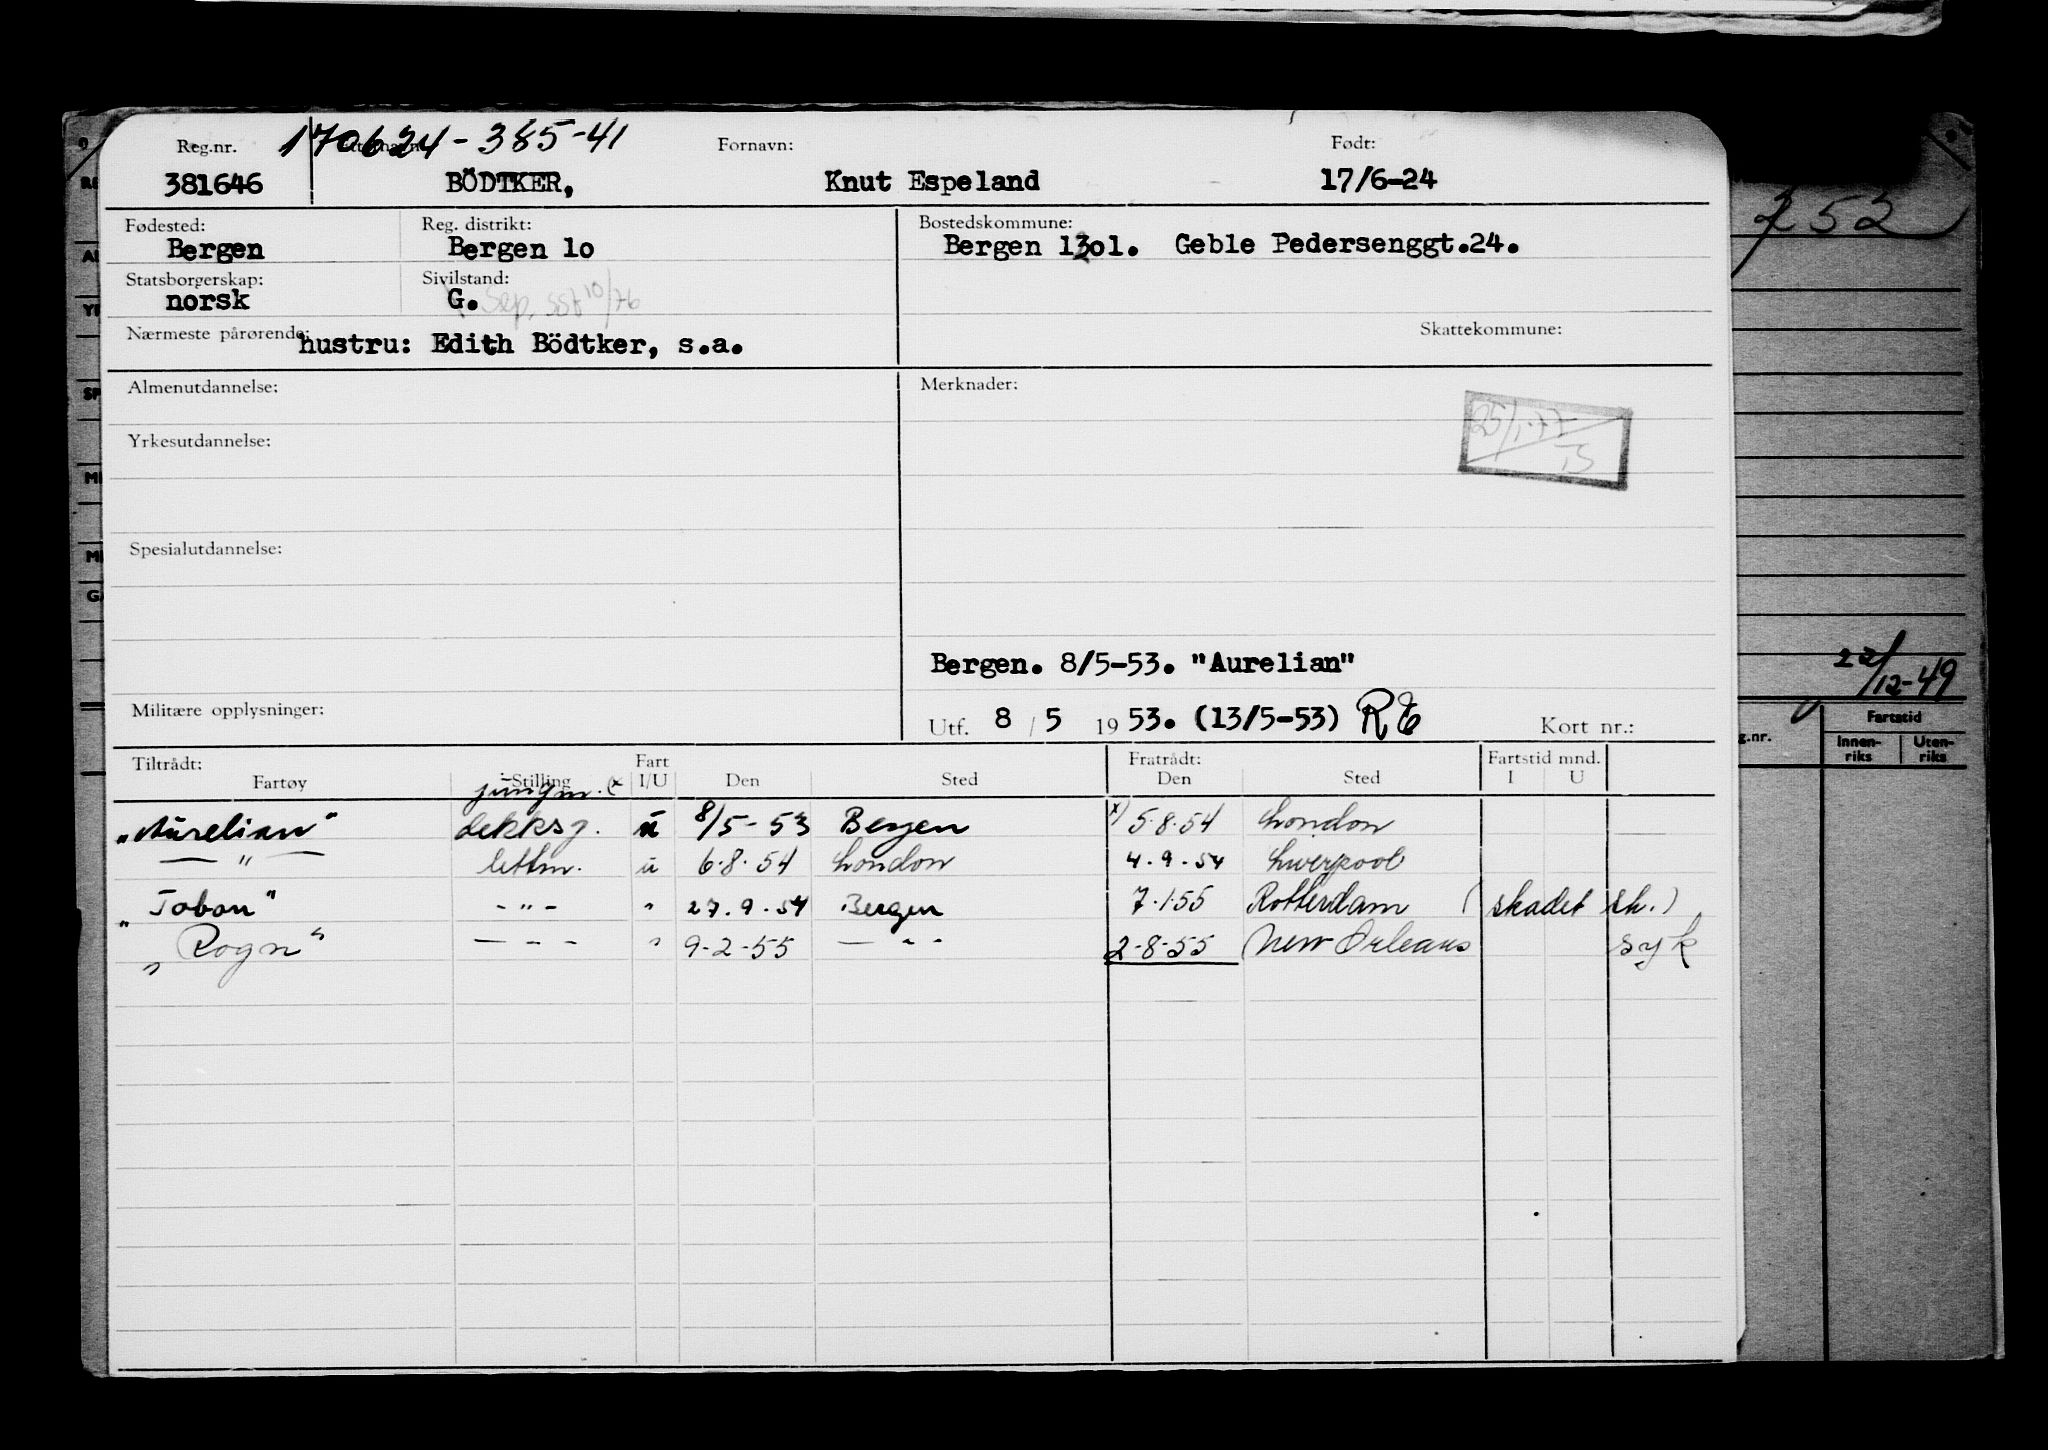 170624-385-41
Reg.nr. Fornavn: Født:
381646 BÖDTKER, Knut Espeland 17/6-24
Fødested: Reg. distrikt: Bostedskommune:
Bergen Bergen 1o Bergen 1301. Geble Pedersenggt.24.
Statsborgerskap: Sivilstand:
norsk G. Sep. 10/76
Nærmeste pårørende: Skattekommune:
hustru: Edith Bödtker, s.a.
Almenutdannelse: Merknader:
25/1-77
Yrkesutdannelse:
Spesialutdannelse:
Bergen. 8/5-53. "Aurelian"
Militære opplysninger: Utf. 8 / 5 19 53. (13/5-53) RE Kort nr.:
Tiltrådt: Fart Fratrådt: Fartstid mnd.
Fartøy Stilling I/U Den Sted Den Sted I U
jungm. (x
"Aurelian" dekksg. u 8/5-53 Bergen x) 5.8.54 London
— " — lettm. u 6.8.54 London 4.9.54 Liverpool
"Toban" - " - " 27.9.54 Bergen 7.1.55 Rotterdam (skadet sk.)
"Rogn" — - - " 9-2-55 — " - 2-8-55 New Orleans syk
252
22/12-49
g.nr. Fartstid
Innen-riks Uten-riks